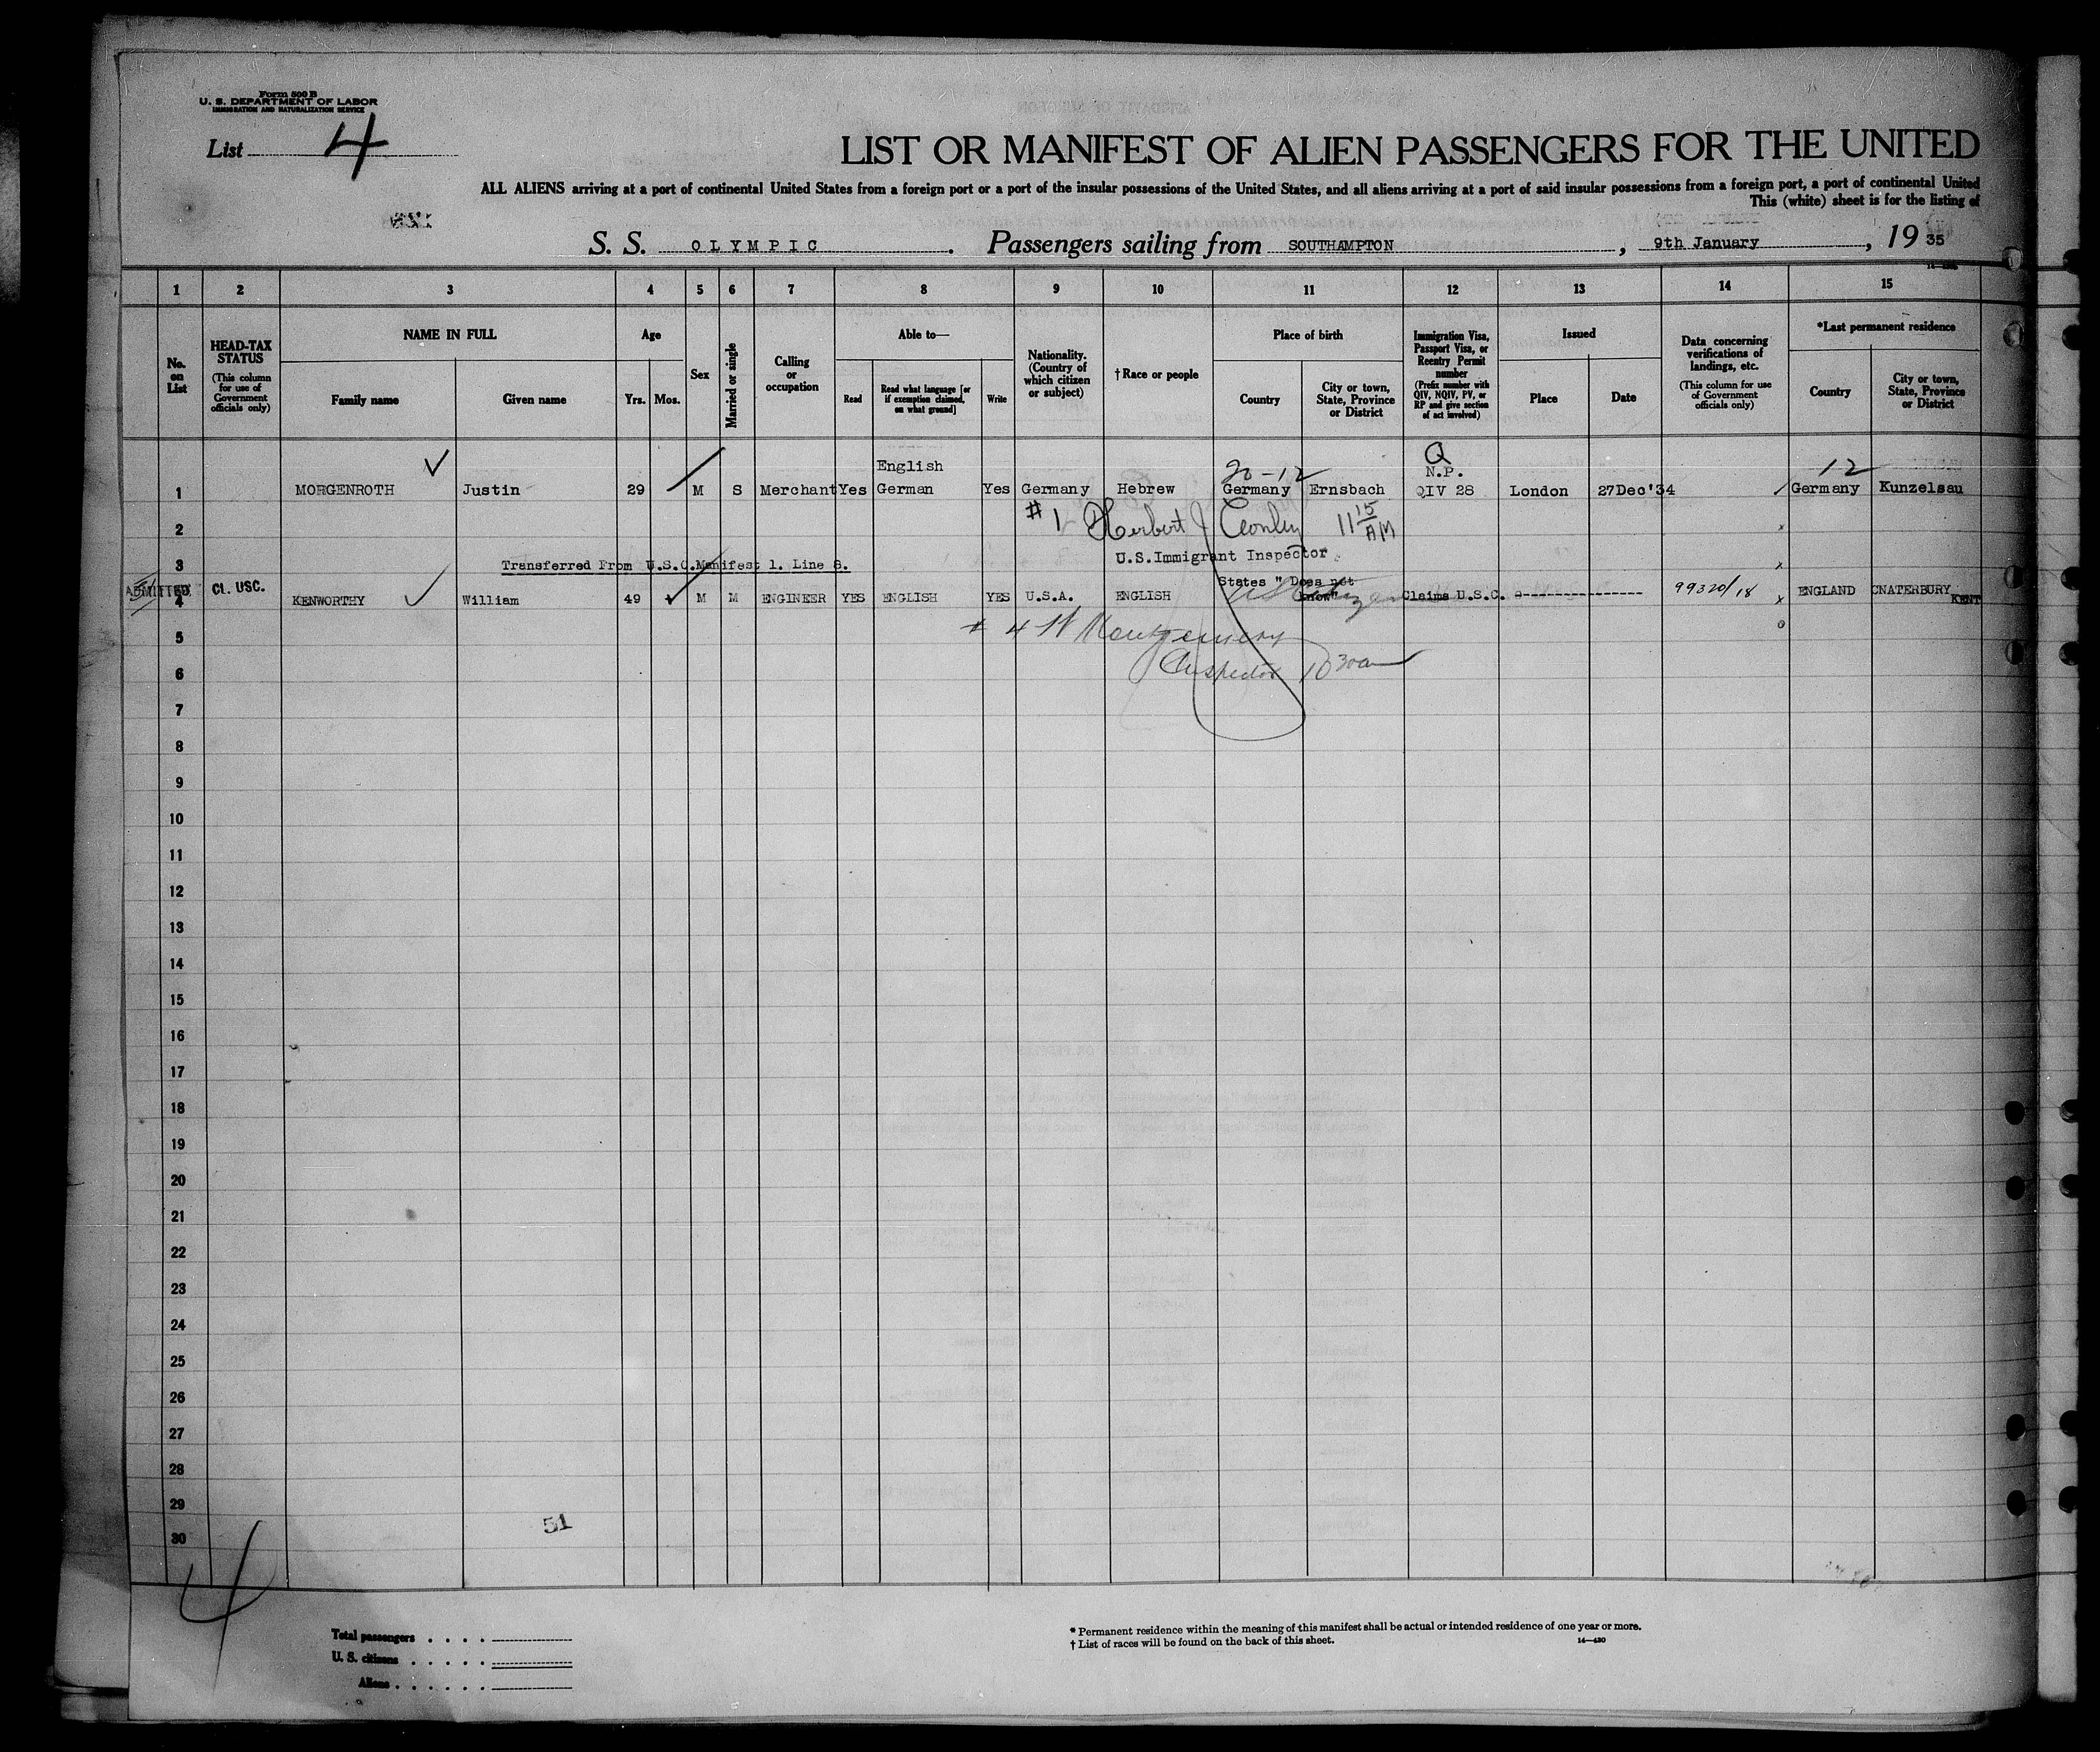 Form 500 B
U. S. DEPARTMENT OF LABOR
IMMIGRATION AND NATURALIZATION SERVICE
List 4
LIST OR MANIFEST OF ALIEN PASSENGERS FOR THE UNITED
ALL ALIENS arriving at a port of continental United States from a foreign port or a port of the insular possessions of the United States, and all aliens arriving at a port of said insular possessions from a foreign port, a port of continental United
This (white) sheet is for the listing of
S. S. OLYMPIC. Passengers sailing from SOUTHAMPTON, 9th January, 19 35
1 2 3 4 5 6 7 8 9 10 11 12 13 14 15
No. on List
HEAD-TAX STATUS (This column for use of Government officials only)
NAME IN FULL
Family name
Given name
Age
Yrs. Mos.
Sex
Married or single
Calling or occupation
Able to—
Read
Read what language [or if exemption claimed, on what ground]
Write
Nationality. (Country of which citizen or subject)
† Race or people
Place of birth
Country
City or town, State, Province or District
Immigration Visa, Passport Visa, or Reentry Permit number (Prefix number with QIV, NQIV, PV, or RP and give section of act involved)
Issued
Place
Date
Data concerning verifications of landings, etc. (This column for use of Government officials only)
*Last permanent residence
Country
City or town, State, Province or District
English 20-12 Q N.P. 12
1 MORGENROTH Justin 29 M S Merchant Yes German Yes Germany Hebrew Germany Ernsbach QIV 28 London 27Dec'34 Germany Kunzelsau
2 #1 Herbert J 11 15 AM
U.S.Immigrant Inspector
3 Transferred From U.S.C.Manifest 1. Line 8.
States " Does not know"
ADMITTED
4 Cl. USC. KENWORTHY William 49 M M ENGINEER YES ENGLISH YES U.S.A. ENGLISH Claims U.S.C. 99320/18 ENGLAND CNATERBURY KENT
5 # 4 Montgomery
6 Inspector 10 30am
7
8
9
10
11
12
13
14
15
16
17
18
19
20
21
22
23
24
25
26
27
28
29
51
30
4
Total passengers
U. S. citizens
Aliens
* Permanent residence within the meaning of this manifest shall be actual or intended residence of one year or more.
† List of races will be found on the back of this sheet.
14—430